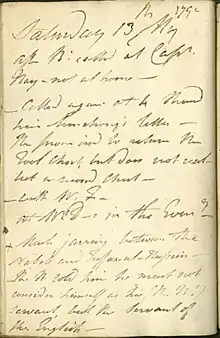 Saturday 13th 1792
aft Br: called at Capt.
May - not at home -
Called again at 4 Shewd
him Smeathmg's letter -
He promised to return the
Tool Chest, but does not recol-
lect a second Chest -
with W. F -
at Mr D - s in the Eveng
- Much jarring between the
Nabob and
The N. told him he must not
consider himself as his (the N's)
servant but the Servant of
the English -